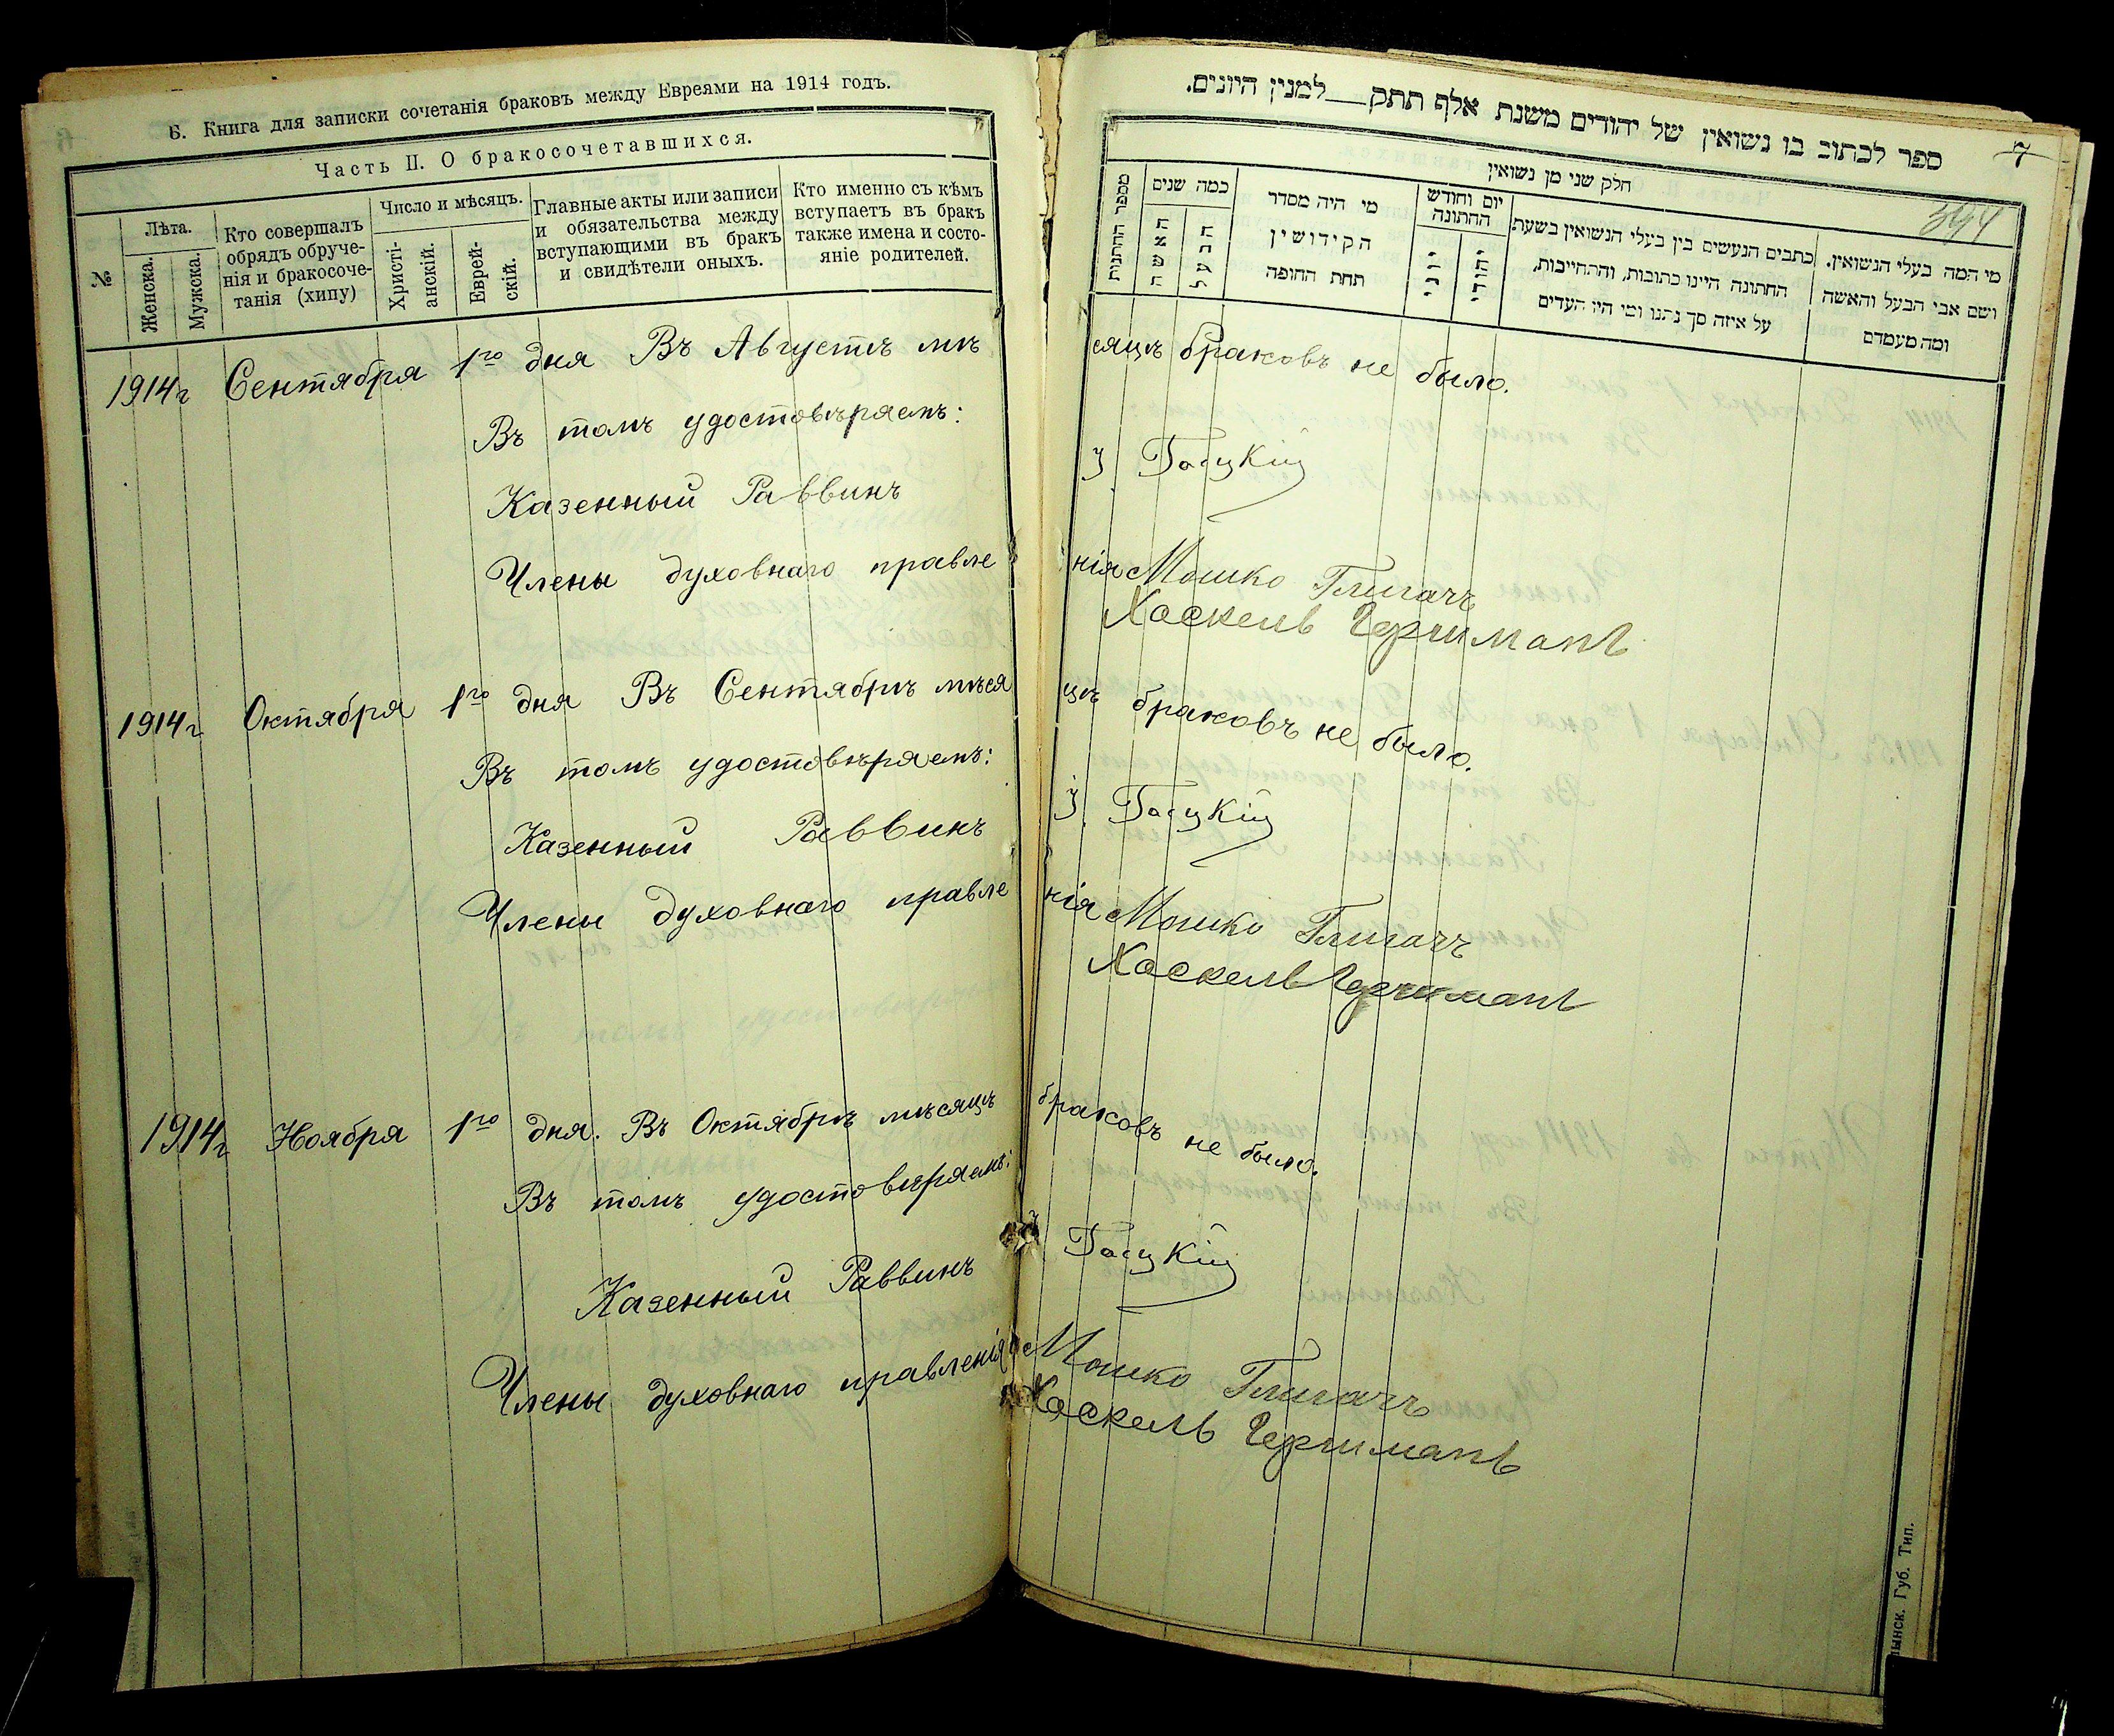 Б. Книга для записки сочетанія браковъ между Евреями на 1914 годъ.
Часть II. О бракосочетавшихся.
№
Лѣта.
Женска.
Мужска.
Кто совершалъ
обрядъ обруче-
нія и бракосоче-
танія (хипу)
Число и мѣсяцъ.
Христі-
анскій.
Еврей-
скій.
Главные акты или записи
и обязательства между
вступающими въ бракъ
и свидѣтели оныхъ.
Кто именно съ кѣмъ
вступаетъ въ бракъ
также имена и состо-
яніе родителей.
ספר לכתוב בו נשואין של יהודים משנת אלף תתק__למנין היונים.
7
394
חלק שני מן נשואין
מספר החתנות
כמה שנים
האשה
הבעל
מי היה מסדר
הקידושין
תחת החופה
יום וחודש
החתונה
יוני
יהודי
כתבים הנעשים בין בעלי הנשואין בשעת
החתונה היינו כתובות, והתחייבות,
על איזה סך נתנו ומי היו העדים
מי המה בעלי הנשואין.
ושם אבי הבעל והאשה
ומה מעמדם
1914г Сентября 1го дня Въ Августѣ мѣсяцѣ браковъ не было.
Въ томъ удостовѣряемъ:
Казенный Раввинъ
Члены духовнаго правленія Мошко
Хаскель
1914г Октября 1го дня Въ Сентябрѣ мѣсяцѣ браковъ не было.
Въ томъ удостовѣряемъ:
Казенный Раввинъ
Члены духовнаго правленія Мошко
Хаскель
1914г Ноября 1го дня. Въ Октябрѣ мѣсяцѣ браковъ не было.
Въ томъ удостовѣряемъ:
Казенный Раввинъ
Члены духовнаго правленія Мошко
Хаскель
Губ. Тип.